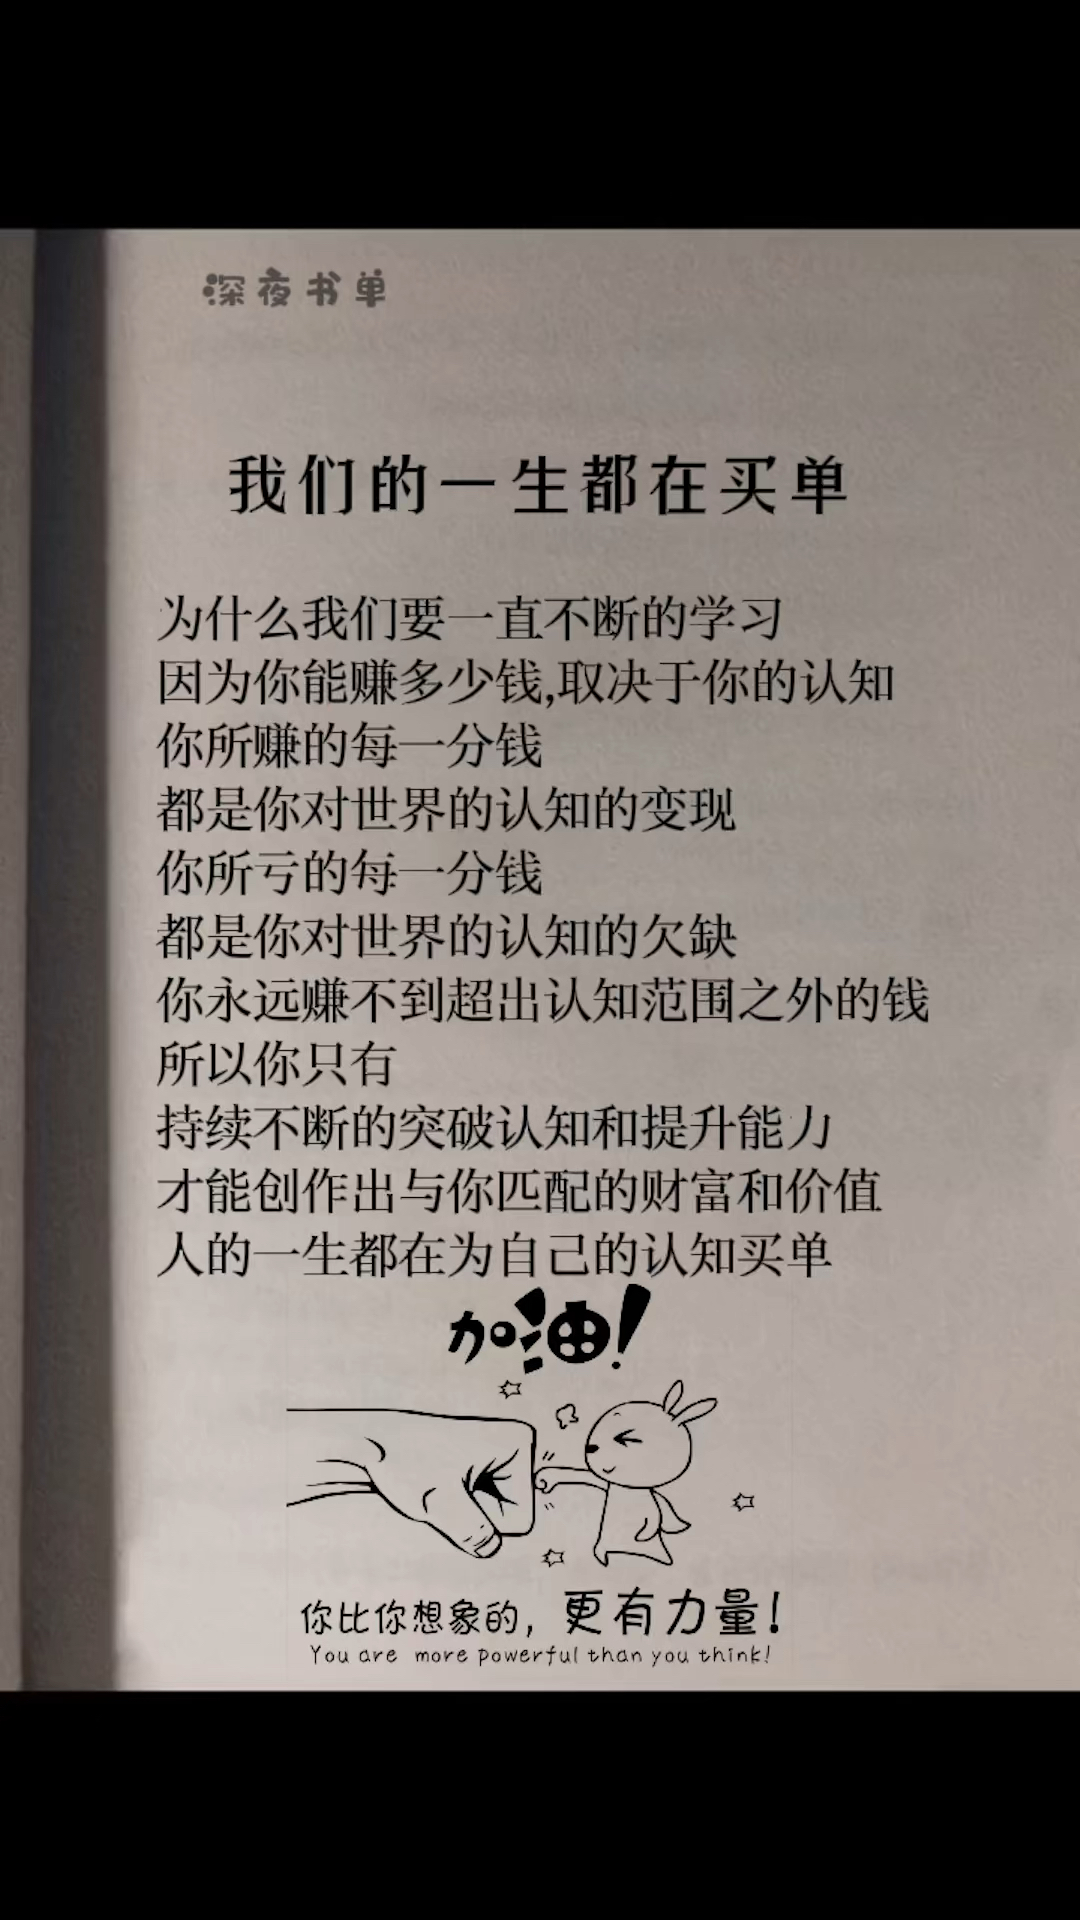 深夜书单
我们的一生都在买单
为什么我们要一直不断的学习
因为你能赚多少钱,取决于你的认知
你所赚的每一分钱
都是你对世界的认知的变现
你所亏的每一分钱
都是你对世界的认知的欠缺
你永远赚不到超出认知范围之外的钱
所以你只有
持续不断的突破认知和提升能力
才能创作出与你匹配的财富和价值
人的一生都在为自己的认知买单
加油!
你比你想象的，更有力量!
You are more powerful than you think!